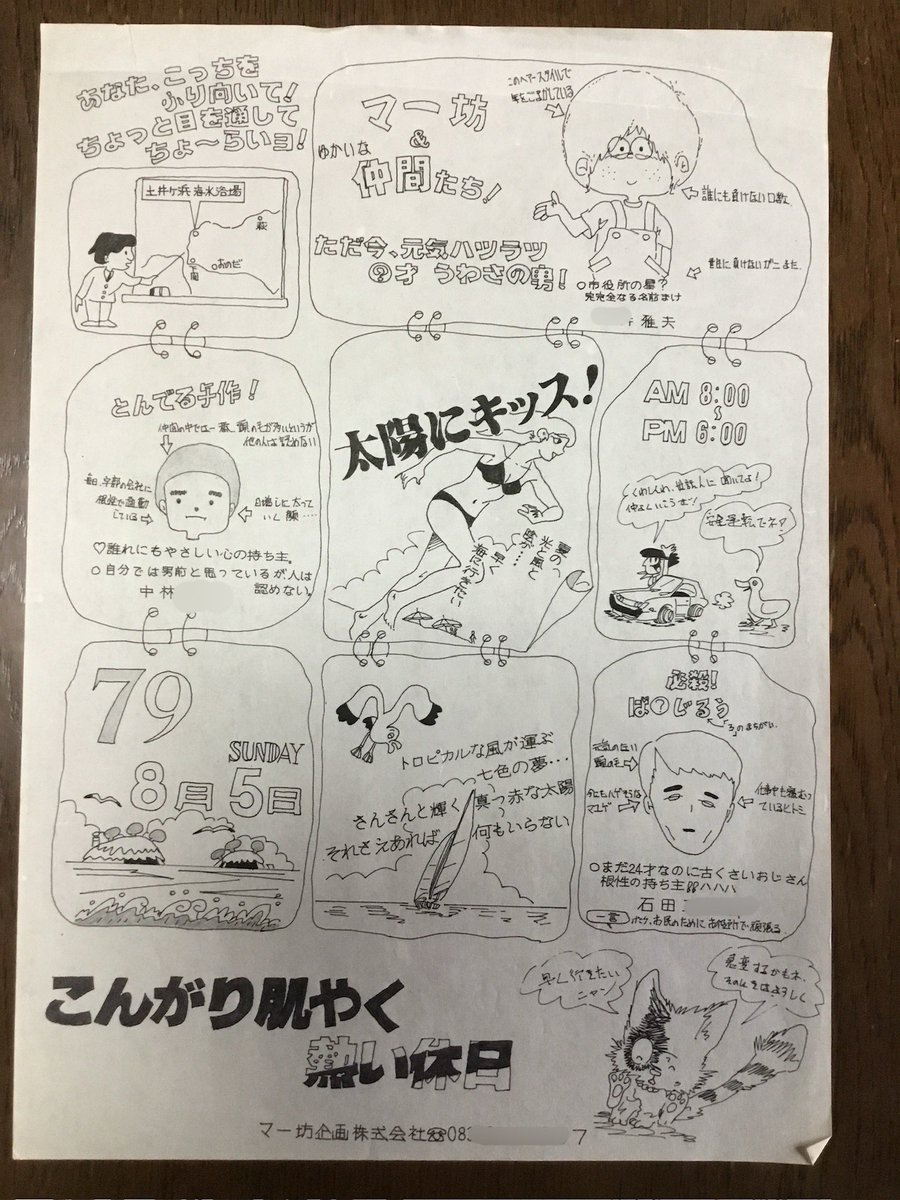 あなた、こっちを
ふり向いて!
ちょっと目を通して
ちょ〜らいヨ!
土井ヶ浜海水浴場
萩
下関
おのだ
マー坊
&
ゆかいな
仲間たち!
ただ今、元気ハツラツ
?才 うわさの男!
このヘアースタイルで
年をごまかしている
誰にも負けない口数
○市役所の星?
完完全なる名前まけ
雅夫
とんでる手作!
仲間の中では一番、頭の毛が多いというが
他の人は認めない
毎日、宇部の会社に
で通勤
している
日増しに太って
いく顔……
♡誰れにもやさしい心の持ち主。
○自分では男前と思っているが人は
認めない。
中林
太陽にキッス!
夏の
光と風と
波が…
早く
海に行きたい
AM 8:00
〜
PM 6:00
くわしくわ、世話人に聞いてよ!
仲よくいこうぜ!
安全運転でネ!
79
SUNDAY
8月5日
トロピカルな風が運ぶ
七色の夢…
さんさんと輝く真っ赤な太陽
それさえあれば何もいらない
必殺!
ば?じるう
「ろ」のまちがい
元気のない
頭の毛
今にもハゲそうな
マユゲ
仕事中も眠むっ
ているヒトミ
○まだ24才なのに古くさいおじさん
根性の持ち主!!ハハハ
石田
一言
ボク、市民のために お役所で頑張る
こんがり肌やく
熱い休日
早く行きたい
ニャン
急変するかもネ
そのときはよろしく
マー坊企画株式会社☎083
7